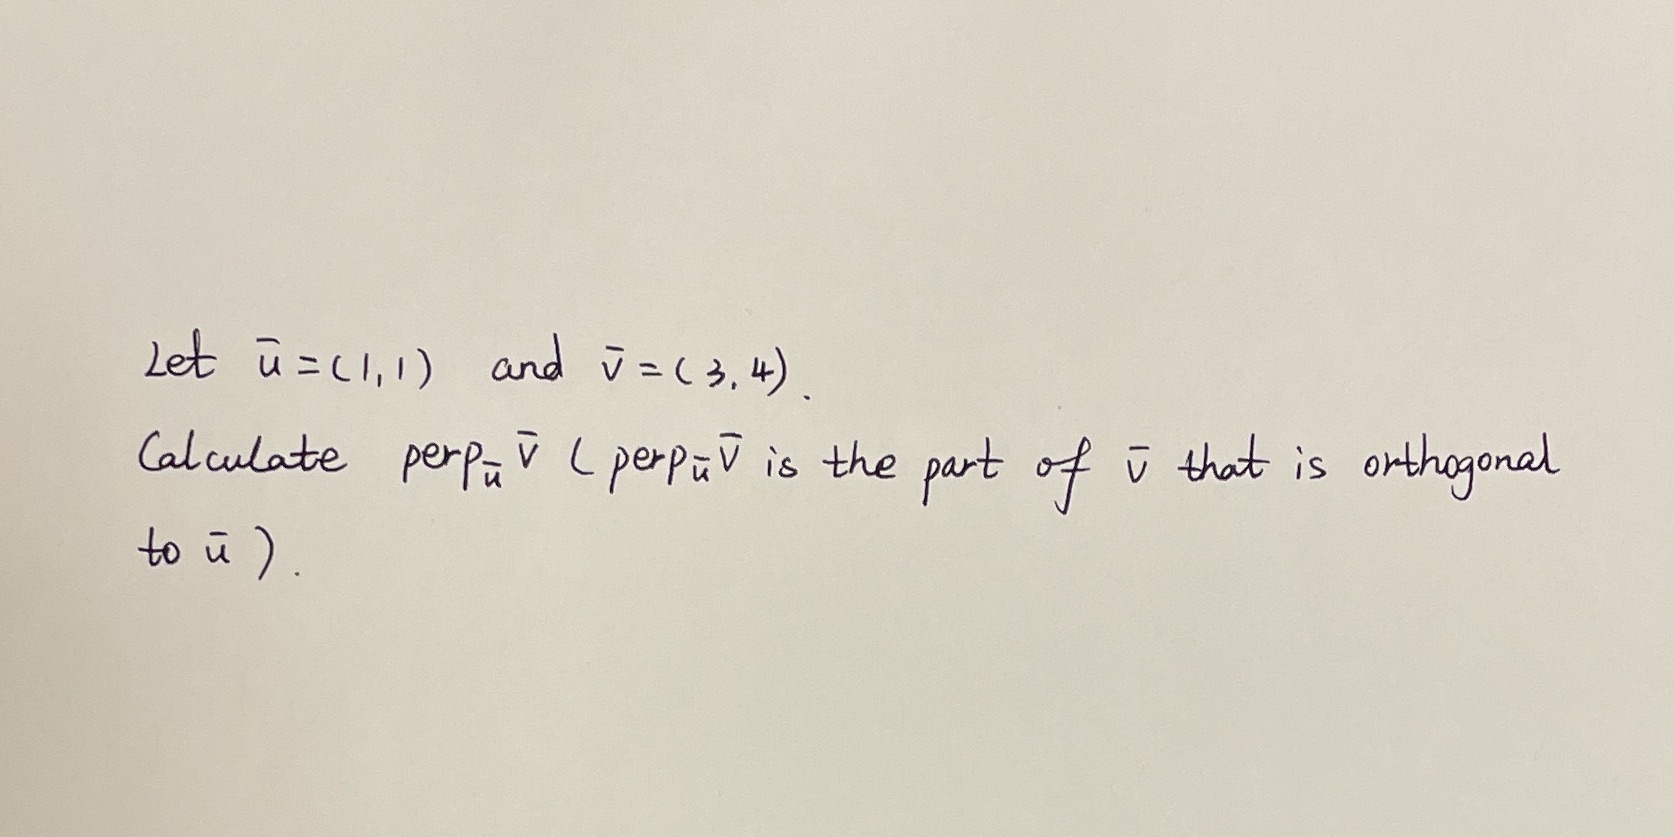 Let ū = (1,1) and v̄ = (3,4).
Calculate perp_ū v̄ (perp_ū v̄ is the part of v̄ that is orthogonal
to ū).